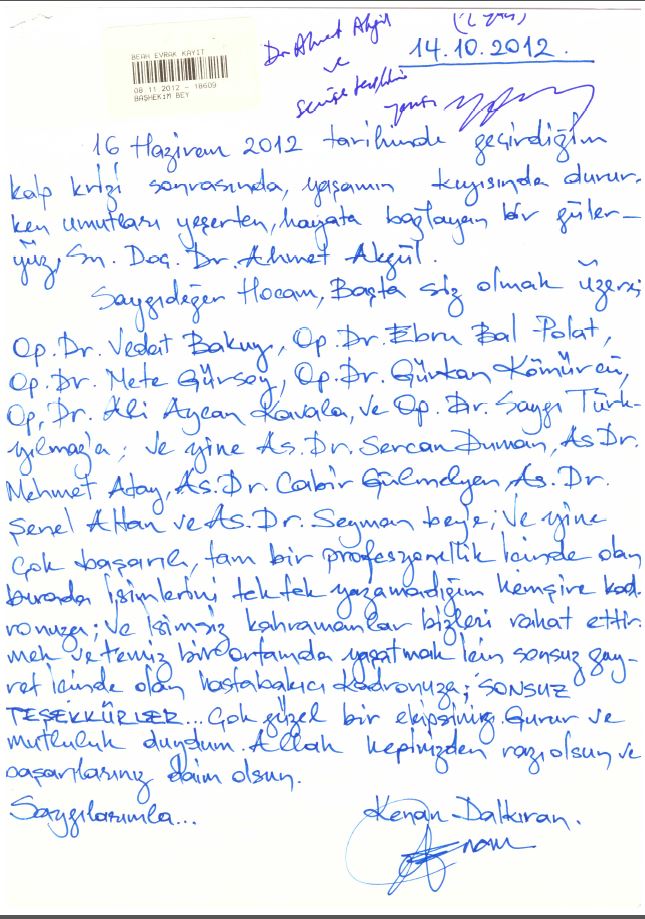 BEAH EVRAK KAYIT
08 11 2012 - 18609
BAŞHEKİM BEY
Dr Ahmet Akgül
ve
14.10.2012.
16 Haziran 2012 tarihinde geçirdiğim
kalp krizi sonrasında, yaşamın kıyısında durur-
ken umutları yeşerten, hayata bağlayan bir güler-
yüz, Sn. Doç. Dr. Ahmet Akgül.
Saygıdeğer Hocam, Başta siz olmak üzere;
Op. Dr. Vedat Bakuy, Op. Dr. Ebru Bal Polat,
Op. Dr. Mete Gürsoy, Op. Dr. Gürkan Kömürcü,
Op. Dr. Ali Aycan Kavala, ve Op. Dr. Saygı Türk-
yılmaz'a; ve yine As. Dr. Sercan Duman, As Dr.
Mehmet Atay, As. Dr. Cabir Gülmelyen, As. Dr.
Şenel Altan ve As. Dr. Seyman beye; ve yine
Çok başarılı, tam bir profesyonellik içinde olan
burada isimlerini tek tek yazamadığım hemşire kad-
ronuza; ve isimsiz kahramanlar bizleri rahat ettir-
mek ve temiz bir ortamda yaşatmak için sonsuz gay-
ret içinde olan hastabakıcı kadronuza; SONSUZ
TEŞEKKÜRLER... Çok güzel bir ekipsiniz. Gurur ve
mutluluk duydum. Allah hepinizden razı olsun ve
başarılarınız daim olsun.
Saygılarımla... Kenan Dalkıran.